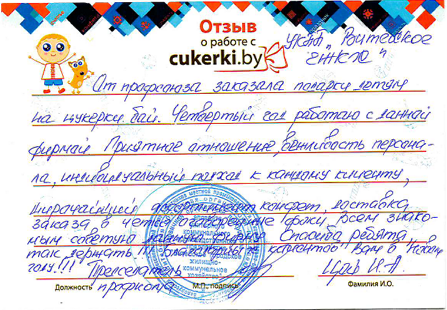 Отзыв
о работе с
cukerki.by
УКПП "Рогачевское
ЖКХ"
От профсоюза заказала подарки детям
на цукерки бай. Четвертый год работаю с данной
фирмой. Приятное отношение, вежливость персона-
ла, индивидуальный подход к каждому клиенту,
широчайший ассортимент конфет, доставка
заказа в четко оговоренные сроки. Всем знако-
мым советую данную фирму. Спасибо, ребята,
так держать!!! Благодарных клиентов Вам в Новом
году!!! Председатель
Должность профкома М.П., подпись Фамилия И.О.
жилищно-
коммунальное